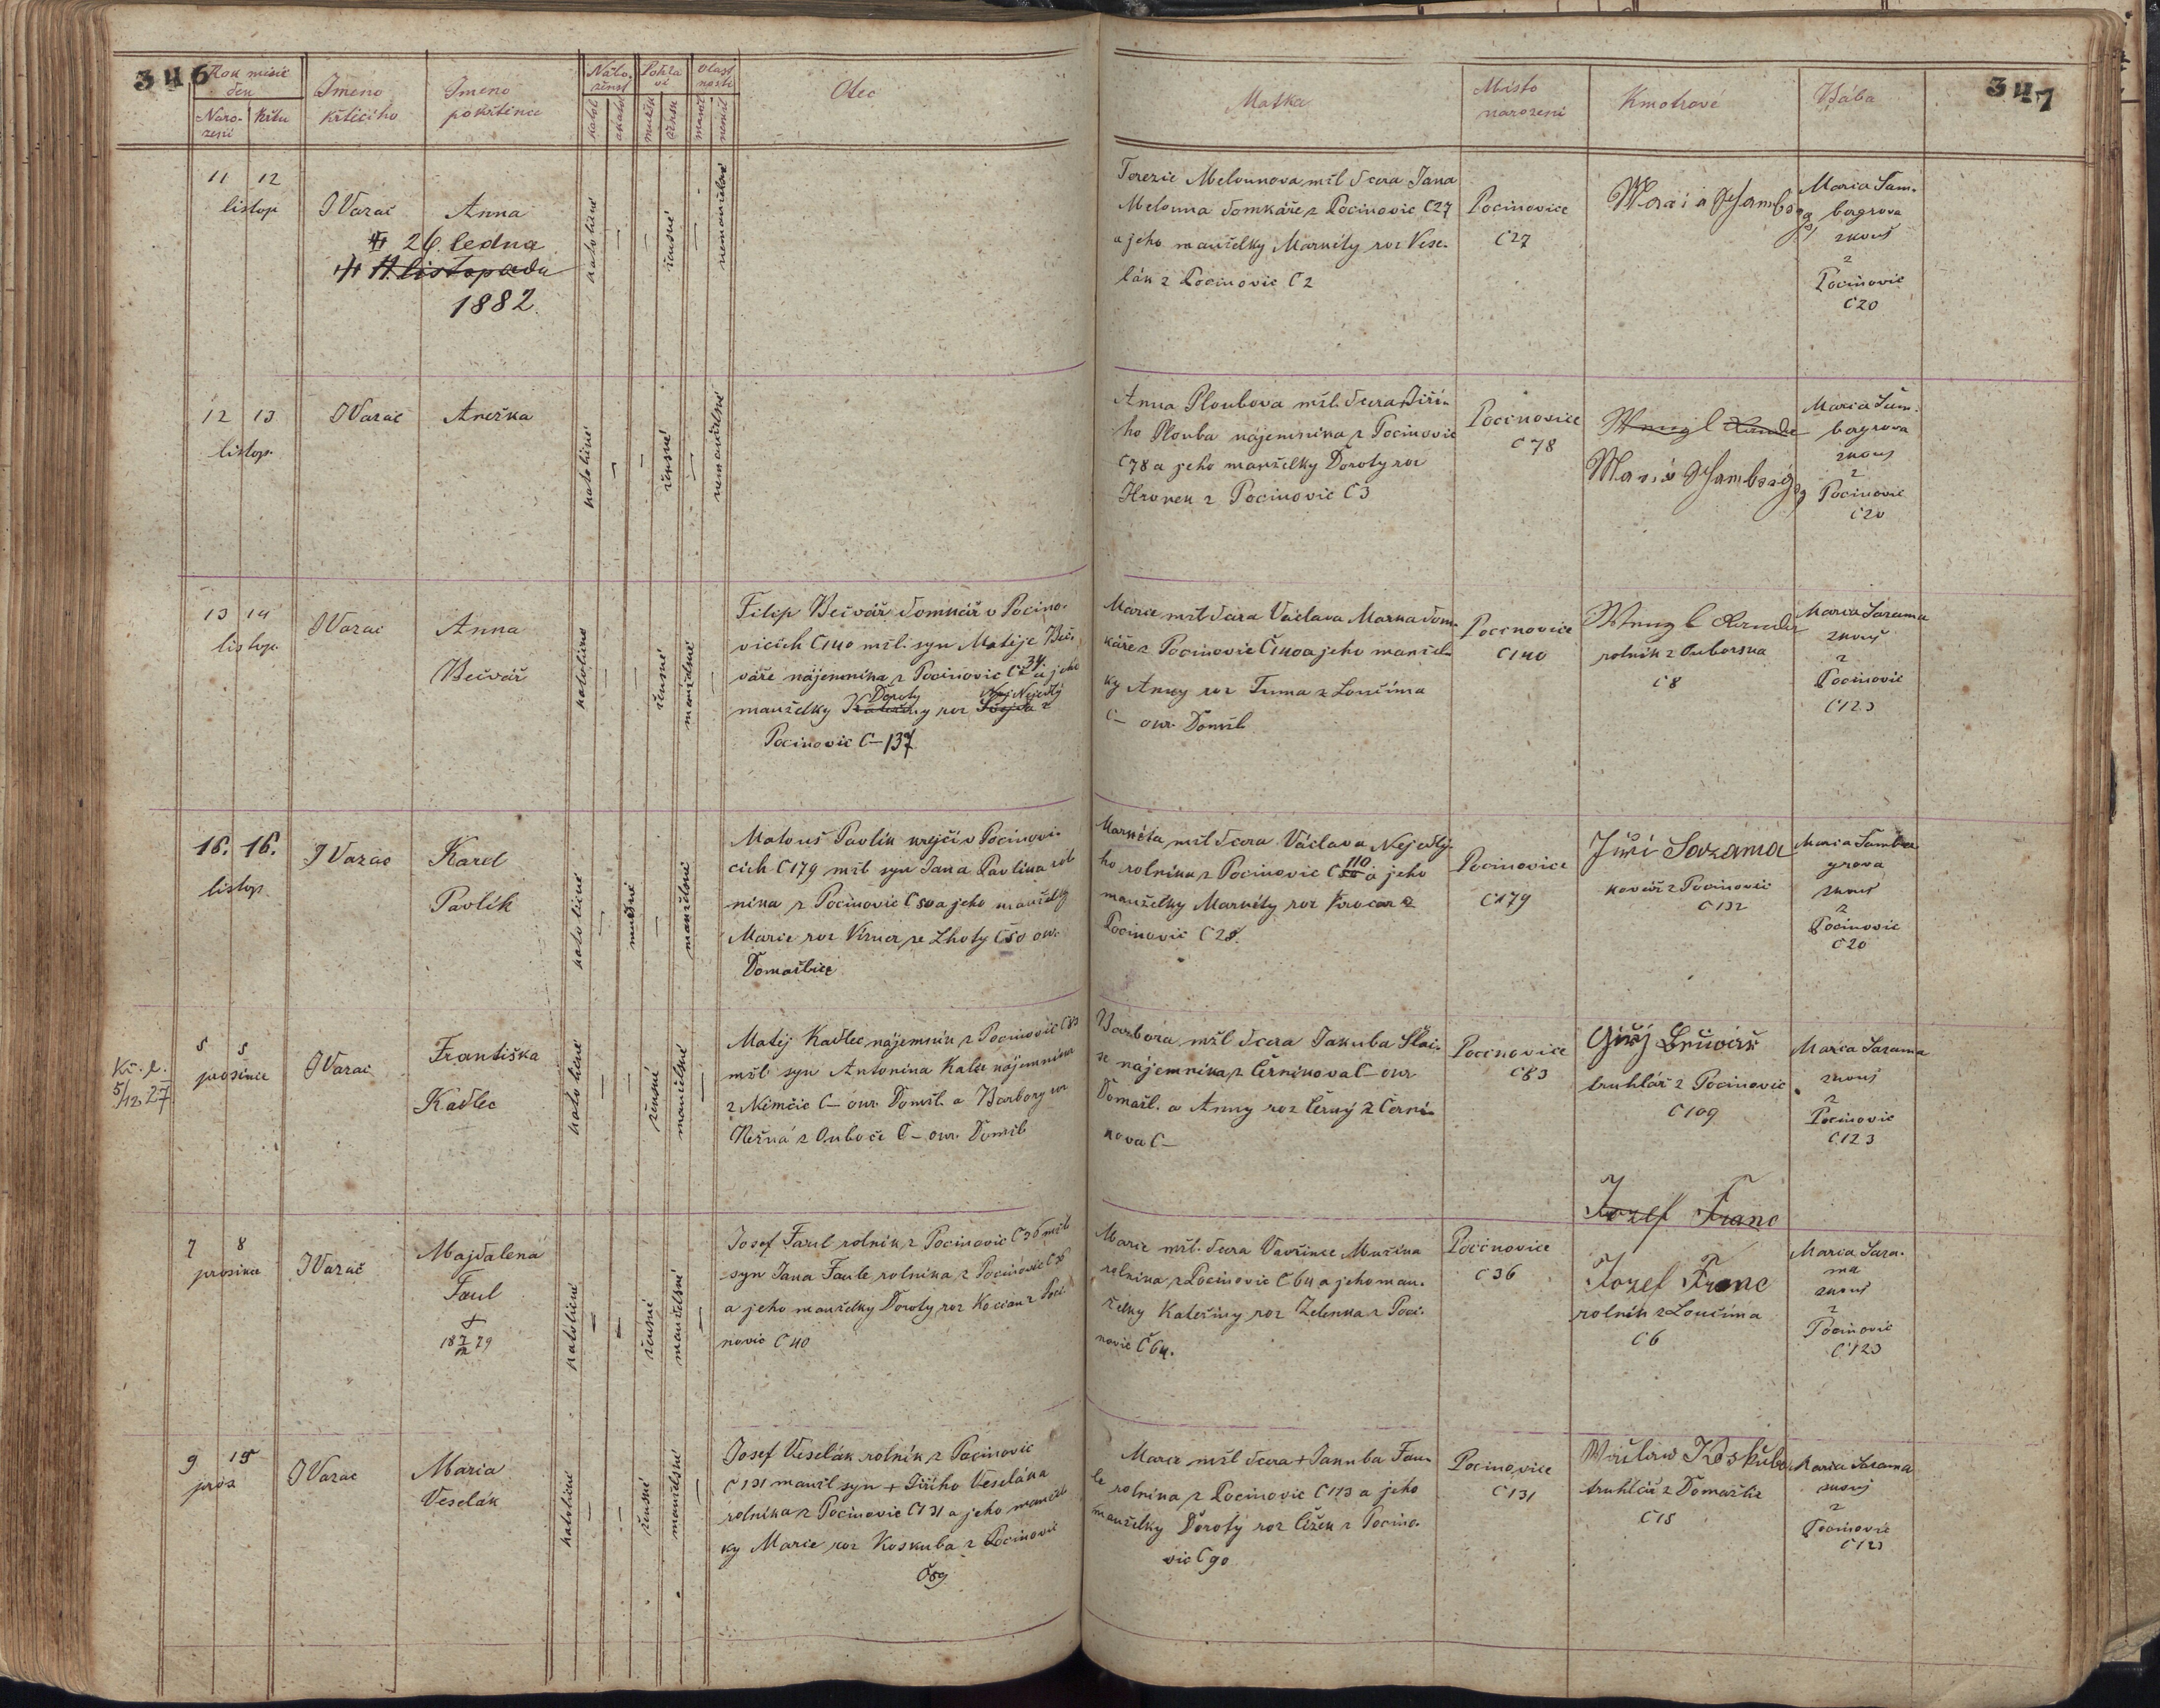 346
Rok měsíc
den
Naro-
zení
Křtu
Jméno
křtícího
Jméno
pokřtěnce
Nábo-
ženst
katol
akatol
Pohla
ví
mužsk
žensk
Vlast
nosti
manž
nemžl
Otec
Matka
Místo
narození
Kmotrové
Bába
347
11 12
listop
J Varač
Anna
26. ledna
11. listopadu
1882.
katolické
—
—
ženské
—
nemanželské
Terezie Melounova mžl dcera Jana
Melouna domkáře z Pocinovic Č 27
a jeho manželky Markéty roz Vese-
lák z Pocinovic Č 2
Pocinovice
Č 27
Maria Samberg
Maria Sam-
bergrova
zkouš
z
Pocinovic
Č 20
12 13
listop.
J Varač
Anežka
katolické
—
—
ženské
—
nemanželské
Anna Ploubova mžl. dcera Jiří-
ho Plouba nájemníka z Pocinovic
Č 78 a jeho manželky Doroty roz
Hronek z Pocinovic Č 3
Pocinovice
Č 78
Maria Samberg
Maria Sam-
bergrova
zkouš
z
Pocinovic
Č 20
13 14
listop.
J Varač
Anna
Bečvář
katolické
—
—
ženské
manželské
—
Filip Bečvář domkář v Pocino-
vicích Č 140 mžl. syn Matěje Beč-
váře nájemníka z Pocinovic Č 34. a jeho
manželky Doroty roz Nejedlý z
Pocinovic Č – 137
Marie mžl dcera Václava Marka dom-
káře z Pocinovic Č 140 a jeho manžel-
ky Anny roz Tuma z Loučima
Č – okr. Domžl
Pocinovice
Č 140
rolník z Ouborska
Č 8
Maria Sarama
zkouš
z
Pocinovic
Č 123
16. 16.
listop
J Varač
Karel
Pavlík
katolické
—
mužské
—
manželské
Matouš Pavlík krejčí v Pocinovi-
cích Č 179 mžl syn Jana Pavlíka rol-
níka z Pocinovic Č 50 a jeho manželky
Marie roz Vizner ze Lhoty Č 50 okr.
Domažlice
Markéta mžl dcera Václava Nejedlý-
ho rolníka z Pocinovic Č 110 a jeho
manželky Markéty roz Krocar z
Pocinovic Č 28.
Pocinovice
Č 179
Jiří Sarama
kovář z Pocinovic
Č 132
Maria Sambe-
grova
zkouš
z
Pocinovic
Č 20
Kř. l.
5/12. 27
5 5
prosince
J Varač
Františka
Kadlec
katolické
—
—
ženské
manželské
—
Matěj Kadlec nájemník z Pocinovic Č 83
mžl syn Antonína Kalce nájemníka
z Němčic Č – okr. Domžl. a Barbory roz
Řežná z Ouboče Č – okr. Domžl
Barbora mžl dcera Jakuba Šlai-
se nájemníka z Černíkova Č – okr
Domažl. a Anny roz Černý z Černí-
kova Č –
Pocinovice
Č 83
truhlář z Pocinovic
Č 109
Maria Sarama
zkouš
z
Pocinovic
Č 123
Jozef Franc
7 8
prosince
J Varač
Majdalena
Faul
†
18 7/12 79
katolické
—
—
ženské
manželské
—
Josef Faul rolník z Pocinovic Č 36 mžl
syn Jana Faule rolníka z Pocinovic Č 36
a jeho manželky Doroty roz Kocian z Poci-
novic Č 40
Marie mžl. dcera Vavřince Mužíka
rolníka z Pocinovic Č 64 a jeho man-
želky Kateřiny roz Zelenka z Poci-
novic Č 64.
Pocinovice
Č 36
Jozef Franc
rolník z Loučima
Č 6
Maria Sara-
ma
zkouš
z
Pocinovic
Č 123
9 15
pros
J Varač
Maria
Veselák
katolické
—
—
ženské
manželské
—
Josef Veselák rolník z Pocinovic
Č 131 manžl syn † Jiřího Veseláka
rolníka z Pocinovic Č 131 a jeho manžel-
ky Marie roz Koskuba z Pocinovic
Č 89
Marie mžl dcera † Jakuba Fau-
le rolníka z Pocinovic Č 113 a jeho
manželky Doroty roz Čížek z Pocino-
vic Č 90
Pocinovice
Č 131
Wáclaw Koskuba
truhlář z Domažlic
Č 18
Maria Sarama
zkouš
z
Pocinovic
Č 123